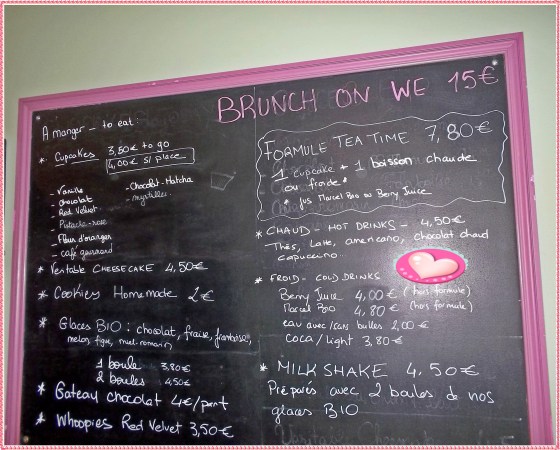 BRUNCH ON WE 15€
A manger - to eat:
* Cupcakes 3,50€ to go
4,00€ s/ place
- Vanille
- chocolat
- Red Velvet
- Pistache-rose
- Fleur d'oranger
- café gourmand
- Chocolat-Matcha
- myrtilles
* Veritable CHEESECAKE 4,50€
* Cookies Homemade 2€
* Glaces BIO : chocolat, fraise, framboise,
melon, figue, miel-romarin
1 boule 3,80€
2 boules 4,50€
* Gateau chocolat 4€/part
* Whoopies Red Velvet 3,50€
FORMULE TEA TIME 7,80€
1 cupcake + 1 boisson chaude
ou froide *
* jus Marcel Bio ou Berry Juice
* CHAUD - HOT DRINKS - 4,50€
Thés, Latte, americano, chocolat chaud
capuccino...
* FROID - COLD DRINKS
Berry Juice 4,00€ (hors formule)
Marcel Bio 4,80€ (hors formule)
eau avec/sans bulles 2,00€
coca/light 3,80€
* MILK SHAKE 4,50€
Préparés avec 2 boules de nos
glaces BIO